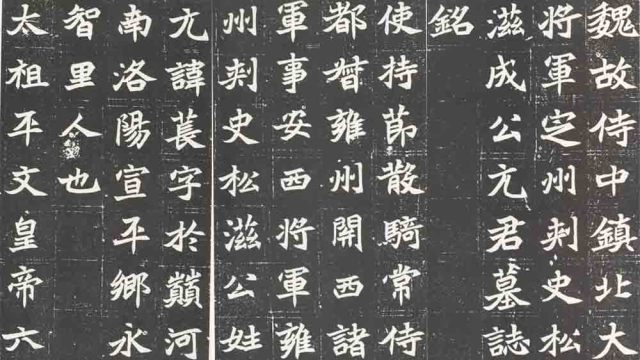 魏故侍中鎮北大
將軍定州刺史松
滋成公元君墓誌
銘
使持節散騎常侍
都督雍州關西諸
軍事安西將軍雍
州刺史松滋公姓
元諱萇字於巔河
南洛陽宣平鄉永
智里人也
太祖平文皇帝六